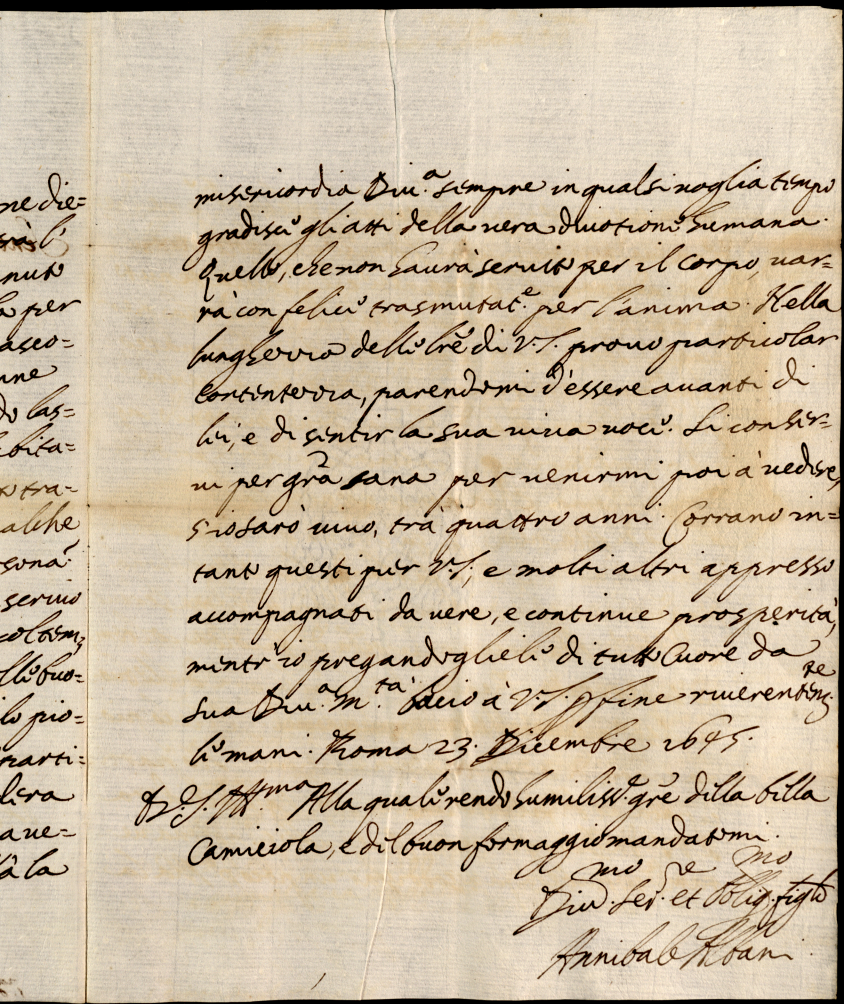 ne die=
rà l'
nuto
a per
asco=
nne
do las=
bita=
tra=
alche
sona
seruo
col tem,
llo buo=
lo pio=
parti=
llera
aue=
à la
misericordia Diu.ª sempre in qualsiuoglia tempo
gradisce gli atti della uera diuotione humana.
Quello, che non haurà seruito per il corpo, uar=
rà con felice trasmutat.e per l'anima. Nella
lunghezza delle lr̃e di V.S. prouo particolar
contentezza, parendomi d'essere auanti di
lei, e di sentir la sua uiua uoce. Si conser=
ui per grã sana per uenirmi poi à uedere,
s'io sarò uiuo, trà quattro anni. Corrano in=
tanto questi per V.S., e molti altri appresso
accompagnati da uere, e continue prosperità,
mentr'io pregandogliele di tutto cuore da
sua Diu.ª M.tà bacio à V.S. p fine riuerentem.te
le mani. Roma 23. Dicembre 1645.
Di V.S. Ill.ma Alla quale rendo humiliss.e gr̃e della bella
Camiciola, e del buon formaggio mandatomi.
Diu.mo Ser.e et Oblig.mo figlo
Annibale Albani